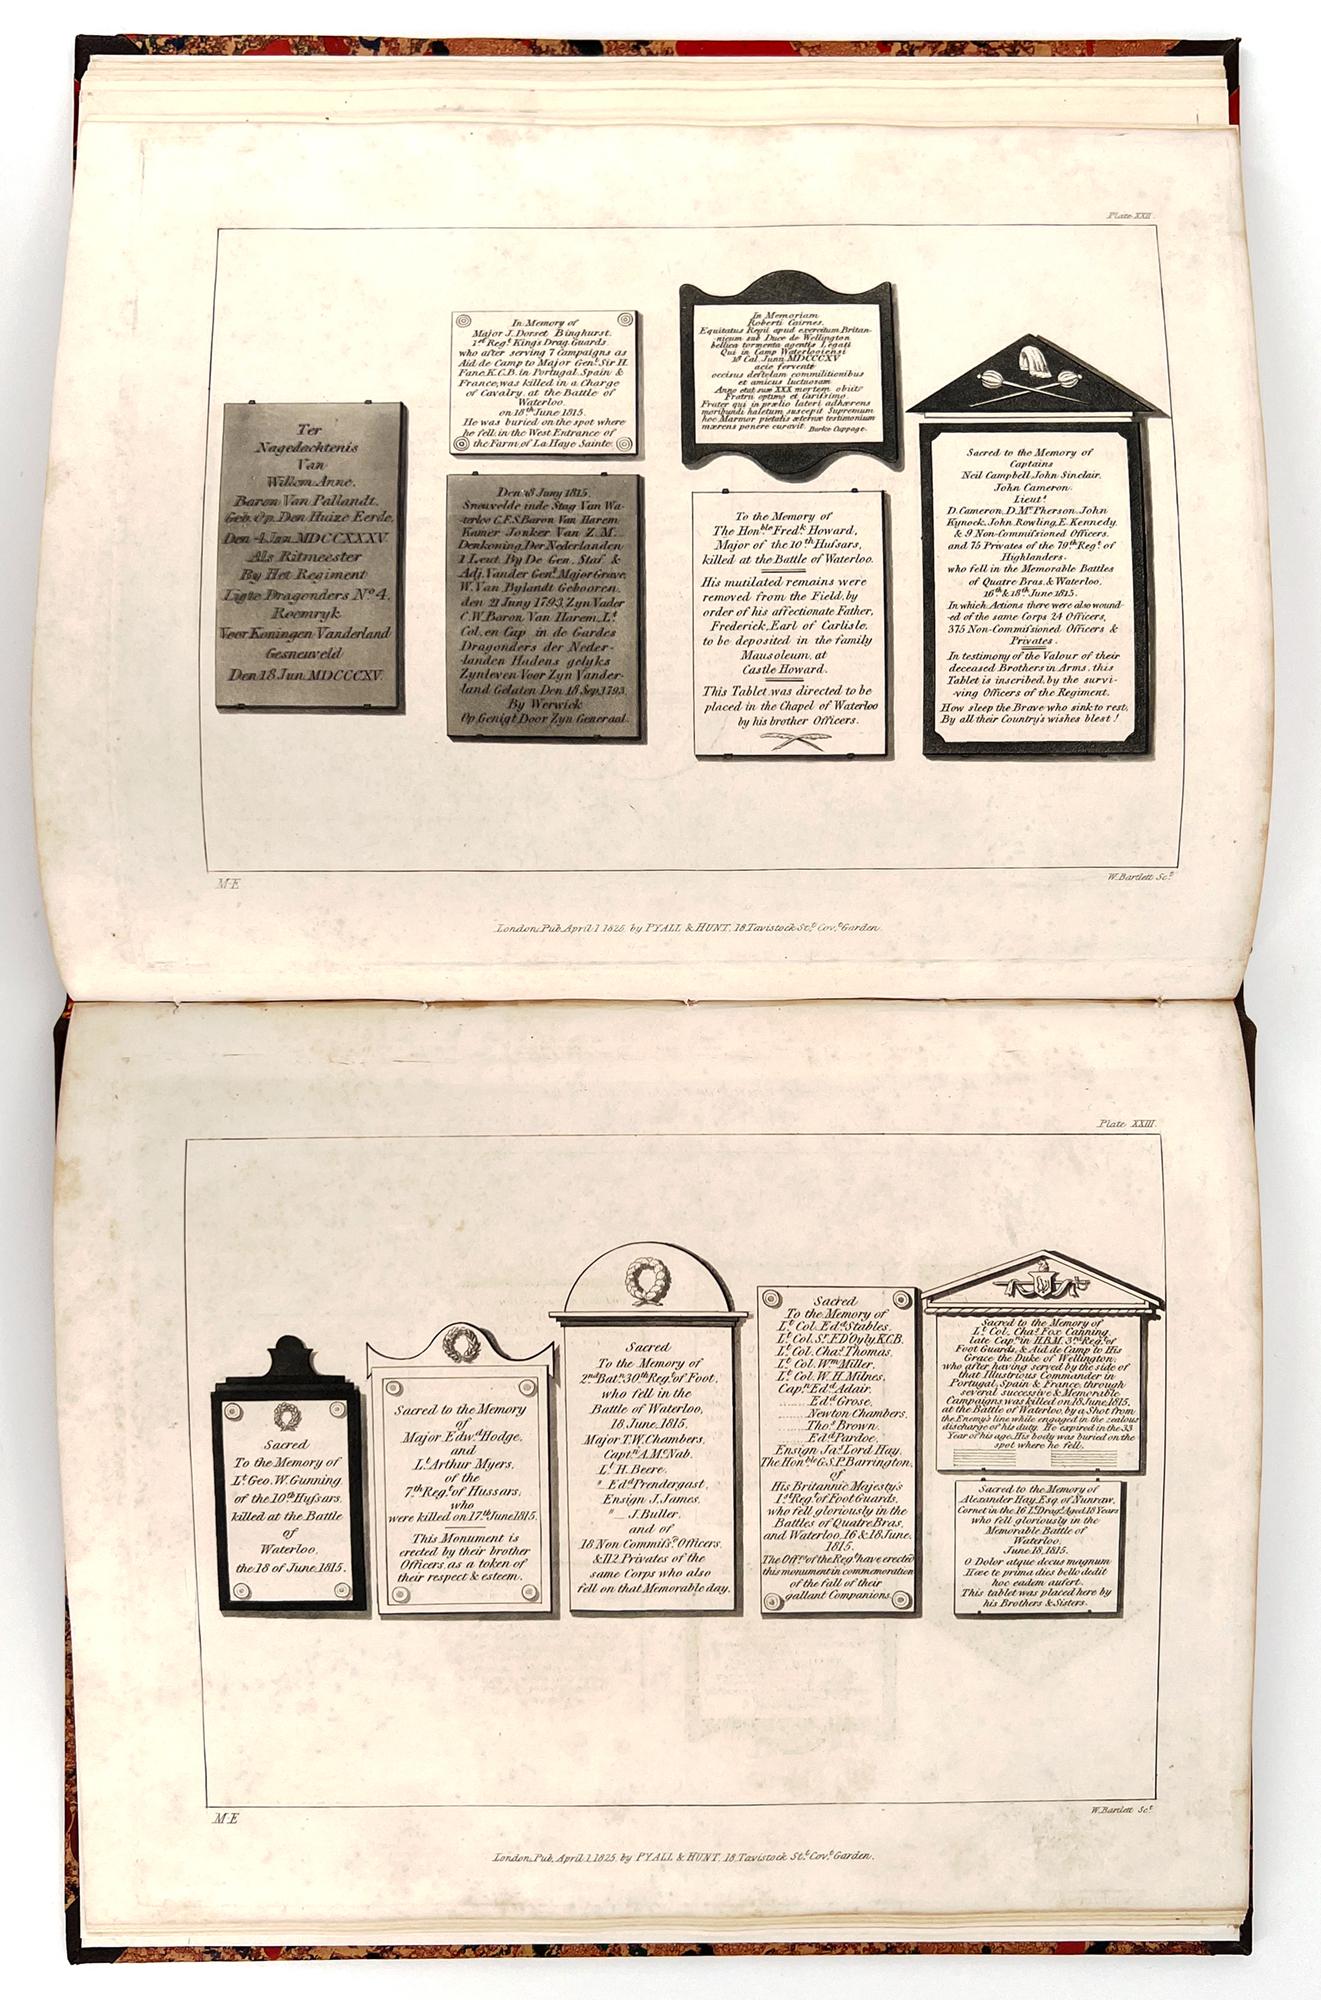 Plate XXII
Ter
Nagedachtenis
Van
Willem Anne.
Baron Van Pallandt.
Geb. Op. Den Huize Eerde.
Den 4 Jan. MDCCXXXV.
Als Ritmeester
By Het Regiment
Ligte Dragonders No. 4.
Roemryk
Voor Koningen Vanderland
Gesneuveld
Den 18 Jun. MDCCCXV.
In Memory of
Major J. Dorset Binghurst.
1st Regt. Kings Drag. Guards.
who after serving 7 Campaigns as
Aid de Camp to Major Genl. Sir H.
Fane, K.C.B. in Portugal, Spain &
France, was killed in a Charge
of Cavalry, at the Battle of
Waterloo.
on 18th June 1815.
He was buried on the spot where
he fell, in the West Entrance of
the Farm of La Haye Sainte.
Den 18 Juny 1815.
Sneuvelde inde Slag Van Wa-
terloo C.F.S. Baron Van Harem
Kamer Jonker Van Z.M.
Denkoning Der Nederlanden
1 Leut. By De Gen. Staf &
Adj. Vander Genl. Major Grave.
W. Van Bylandt Gebooren.
den 21 Juny 1793, Zyn Vader
C.W. Baron Van Harem. Lt.
Col. en Cap in de Gardes
Dragonders der Neder-
landen Hadens gelyks
Zynleven Voor Zyn Vander-
land Gelaten Den 18 Sep. 1793.
By Werwick
Op Genigt Door Zyn Generaal.
In Memoriam
Roberti Cairnes.
Equitatus Regii apud exercitum Britan-
nicum sub Duce de Wellington
bellica tormenta agentis Legati
Qui in Camp Waterlooiensi
18 Cal. Junn. MDCCCXV
acie fervente
occisus defletam commilitionibus
et amicus luctuosam
Anno etat suæ XXX mortem obiit
Fratri optimo et Carissimo
Frater qui in prælio lateri adhærens
moribundi haletum suscepit Supremum
hoc Marmor pietatis æternæ testimonium
mærens ponere curavit. Burke Cuppage.
To the Memory of
The Honble. Fredk. Howard,
Major of the 10th Hufsars,
killed at the Battle of Waterloo.
His mutilated remains were
removed from the Field, by
order of his affectionate Father,
Frederick, Earl of Carlisle,
to be deposited in the family
Mausoleum, at
Castle Howard.
This Tablet was directed to be
placed in the Chapel of Waterloo
by his brother Officers.
Sacred to the Memory of
Captains
Neil Campbell, John Sinclair,
John Cameron.
Lieuts.
D. Cameron, D. Mc.Pherson, John
Kynock, John Rowling, E. Kennedy,
& 9 Non-Commifsioned Officers,
and 75 Privates of the 79th Regt. of
Highlanders.
who fell in the Memorable Battles
of Quatre Bras, & Waterloo,
16th & 18th June 1815.
In which Actions there were also wound-
ed of the same Corps 24 Officers,
375 Non-Commifsioned Officers &
Privates.
In testimony of the Valour of their
deceased Brothers in Arms, this
Tablet is inscribed, by the survi-
-ving Officers of the Regiment.
How sleep the Brave who sink to rest,
By all their Country's wishes blest!
M·E
W. Bartlett Sct.
London, Pub. April 1 1825, by PYALL & HUNT, 18, Tavistock Stt. Covt. Garden.
Plate XXIII.
Sacred
To the Memory of
Lt. Geo. W. Gunning
of the 10th Hufsars,
killed at the Battle
of
Waterloo,
the 18 of June 1815.
Sacred to the Memory
of
Major Edwd. Hodge,
and
Lt. Arthur Myers,
of the
7th Regt. of Hussars,
who
were killed on 17th June 1815.
This Monument is
erected by their brother
Officers, as a token of
their respect & esteem.
Sacred
To the Memory of
2nd Batn. 30th Regt. of Foot,
who fell in the
Battle of Waterloo,
18, June, 1815.
Major T.W. Chambers,
Captn. A. Mc. Nab,
Lt. H. Beere,
" Edd. Prendergast,
Ensign J. James,
" J. Buller,
and of
18 Non Commifsd. Officers,
& 112 Privates of the
same Corps who also
fell on that Memorable day.
Sacred
To the Memory of
Lt. Col. Edd. Stables,
Lt. Col. Sr. F. D'Oyly K.C.B.
Lt. Col. Chas. Thomas,
Lt. Col. Wm. Miller,
Lt. Col. W. H. Milnes,
Capn. Edd. Adair,
........ Edd. Grose,
........ Newton Chambers,
........ Thos. Brown,
........ Edd. Pardoe,
Ensign Jas. Lord Hay,
The Honble. G.S.P. Barrington,
of
His Britannic Majesty's
1st Regt. of Foot Guards,
who fell gloriously in the
Battles of Quatre Bras,
and Waterloo, 16 & 18 June,
1815.
The Offrs. of the Regt. have erected
this monument in commemoration
of the fall of their
gallant Companions.
Sacred to the Memory of
Lt. Col. Chas. Fox Canning,
late Capn. in H.B.M. 3rd Regt. of
Foot Guards, & Aid de Camp to His
Grace the Duke of Wellington,
who after having served by the side of
that Illustrious Commander in
Portugal, Spain & France, through
several successive & Memorable
Campaigns was killed on 18 June, 1815,
at the Battle of Waterloo, by a Shot from
the Enemy's line while engaged in the zealous
discharge of his duty. He expired in the 33
Year of his age. His body was buried on the
spot where he fell.
Sacred to the Memory of
Alexander Hay, Esq. of Nunraw,
Cornet in the 16 Lt. Drags. Aged 18 Years
who fell gloriously in the
Memorable Battle of
Waterloo,
June 18, 1815.
O Dolor atque decus magnum
Hæc te prima dies bello dedit
hoc eadem aufert.
This tablet was placed here by
his Brothers & Sisters.
M·E
W. Bartlett Sct.
London, Pub. April 1, 1825, by PYALL & HUNT, 18, Tavistock Stt. Covt. Garden.